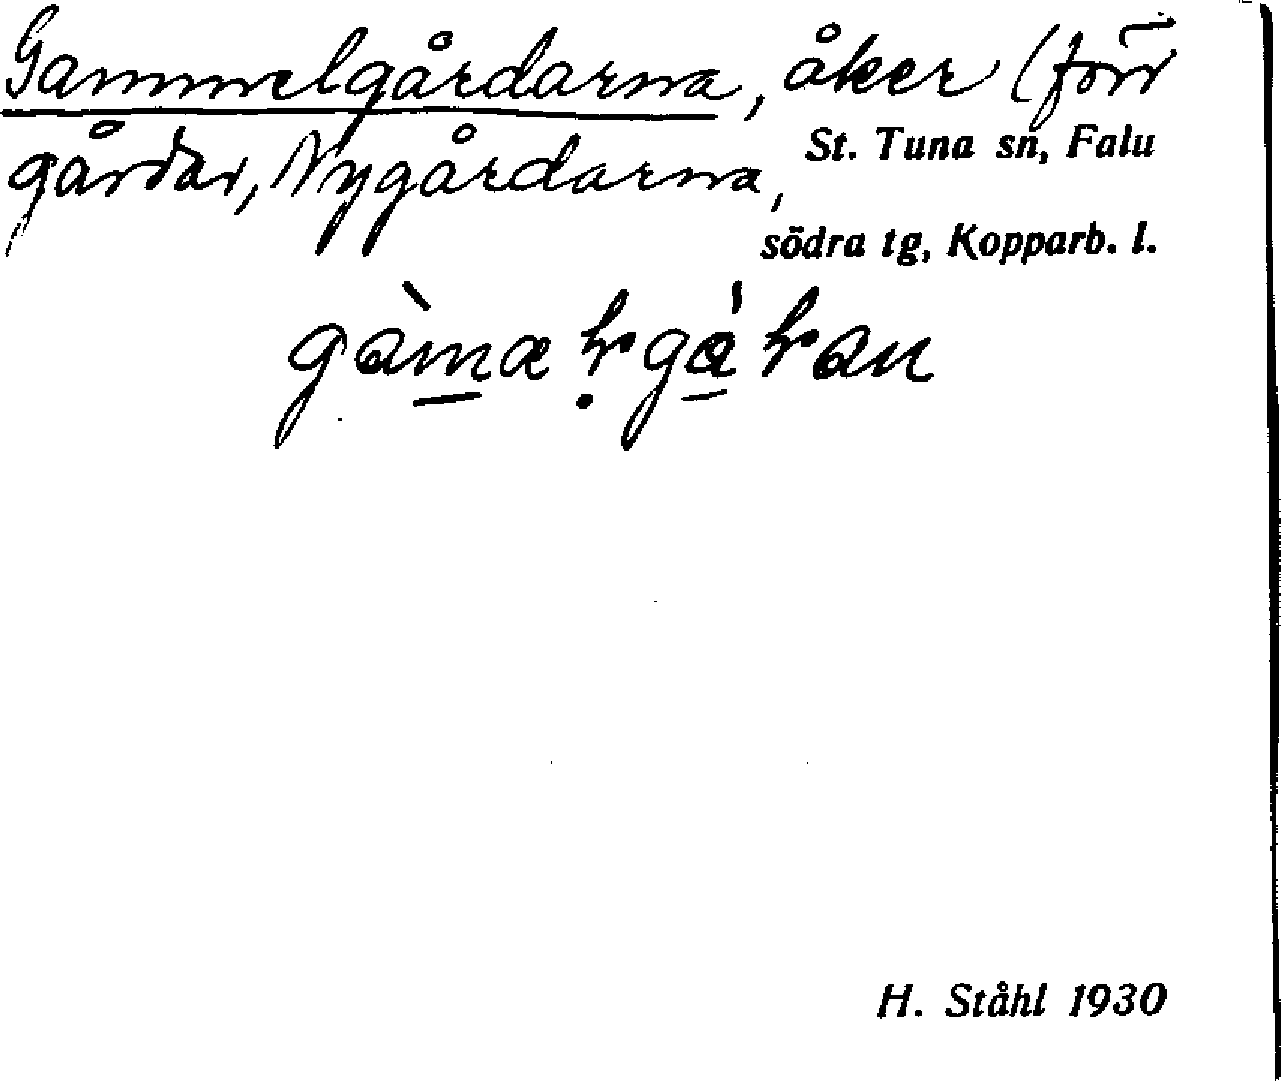 Gammelgårdarna, åker (förr
gårdar, Nygårdarna,
St. Tuna sn, Falu
södra tg, Kopparb. l.
H. Ståhl 1930